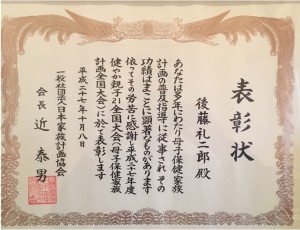 表彰状
後藤礼二郎殿
あなたは多年にわたり母子保健家族
計画の普及指導に従事され その
功績はまことに顕著なものがあります
依ってその労苦に感謝し平成二十七年度
健やか親子21全国大会(母子保健家族
計画全国大会)に於て表彰します
平成二十七年十月八日
一般社団法人日本家族計画協会
会長 近 泰男